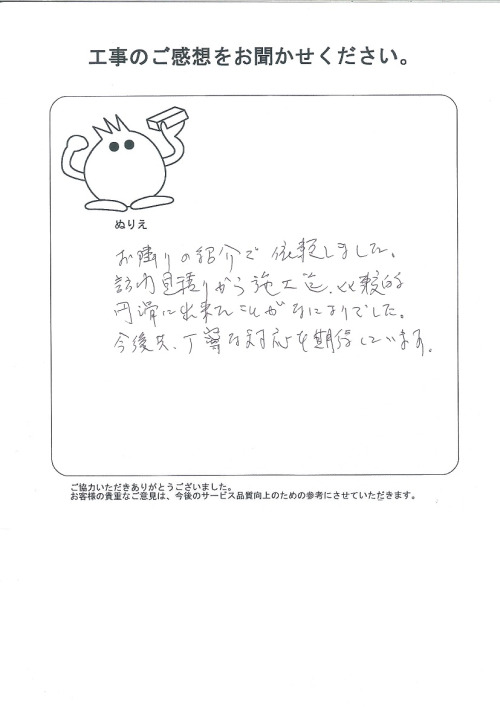 工事のご感想をお聞かせください。
ぬりえ
お隣りの紹介で依頼しました。
訪問見積りから施工迄、比較的
円滑に出来たことがなによりでした。
今後共、丁寧な対応を期待しています。
ご協力いただきありがとうございました。
お客様の貴重なご意見は、今後のサービス品質向上のための参考にさせていただきます。